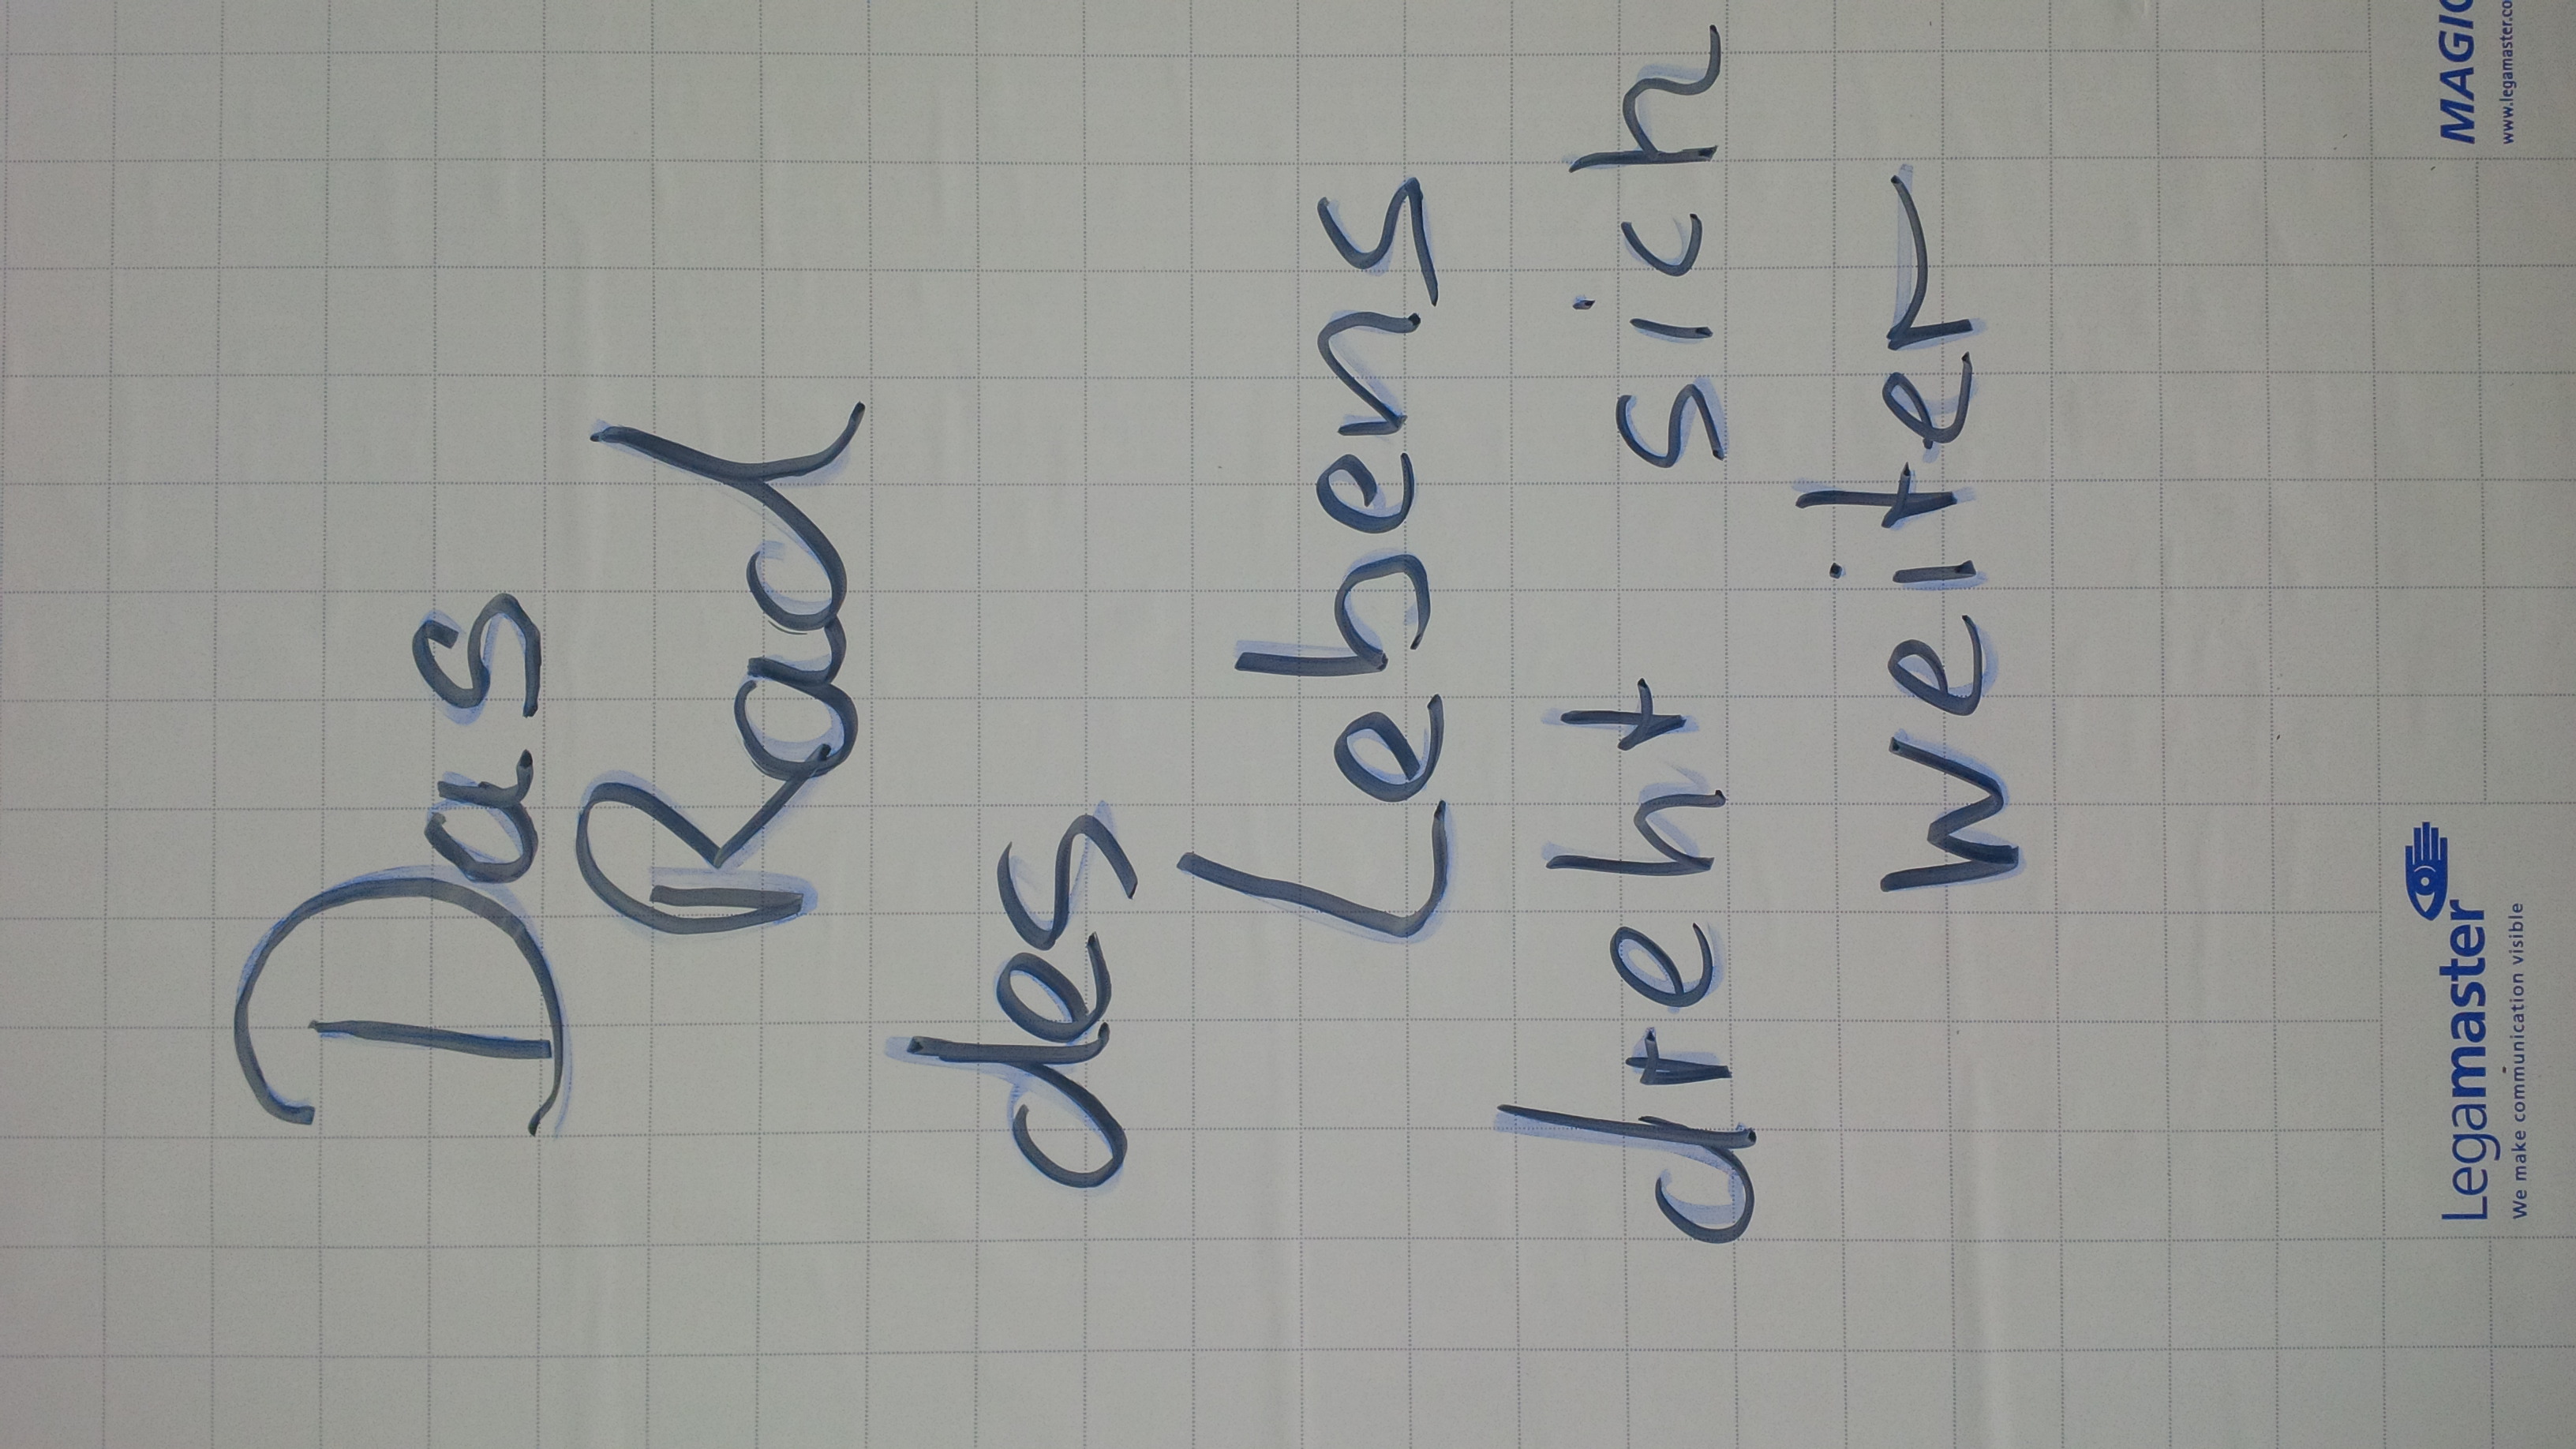 Das
Rad
des
Lebens
dreht sich
weiter
Legamaster
We make communication visible
MAGIC
www.legamaster.co